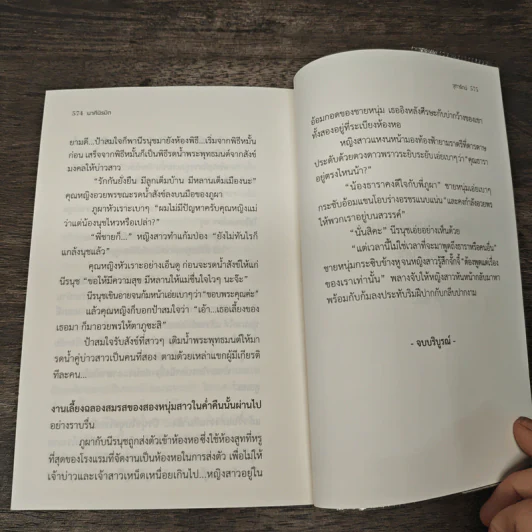 574 นาคีนิรมิต
ยามดี...ป้าสมใจก็พานีรนุชมายังห้องพิธี...เริ่มจากพิธีหมั้น
ก่อน เสร็จจากพิธีหมั้นก็เป็นพิธีรดน้ำพระพุทธมนต์จากสังข์
มงคลให้บ่าวสาว
“รักกันยั่งยืน มีลูกเต็มบ้าน มีหลานเต็มเมืองนะ”
คุณหญิงอวยพรขณะรดน้ำสังข์ลงบนมือของภูผา
ภูผาหัวเราะเบาๆ “ผมไม่มีปัญหาครับคุณหญิงแม่
ว่าแต่น้องนุชไหวหรือเปล่า?”
“พี่ชายก็...” หญิงสาวทำแก้มป่อง “ยังไม่ทันไรก็
แกล้งนุชแล้ว”
คุณหญิงหัวเราะอย่างเอ็นดู ก่อนจะรดน้ำสังข์ให้แก่
นีรนุช “ขอให้มีความสุข มีหลานให้แม่ชื่นใจไวๆ นะจ๊ะ”
นีรนุชเขินอายจนก้มหน้าเอ่ยเบาๆว่า“ขอบพระคุณค่ะ”
แล้วคุณหญิงก็บอกป้าสมใจว่า “เอ้า...เธอเลี้ยงของ
เธอมา ก็มาอวยพรให้ตาภูซะสิ”
ป้าสมใจรับสังข์ที่สาวๆ เติมน้ำพระพุทธมนต์ให้มา
รดน้ำคู่บ่าวสาวเป็นคนที่สอง ตามด้วยเหล่าแขกผู้มีเกียรติ
ทีละคน...
งานเลี้ยงฉลองสมรสของสองหนุ่มสาวในค่ำคืนนั้นผ่านไป
อย่างราบรื่น
ภูผากับนีรนุชถูกส่งตัวเข้าห้องหอ ซึ่งใช้ห้องสุทที่หรู
ที่สุดของโรงแรมที่จัดงานเป็นห้องหอในการส่งตัว เพื่อไม่ให้
เจ้าบ่าวและเจ้าสาวเหน็ดเหนื่อยเกินไป...หญิงสาวอยู่ใน
อ้อมกอดของชายหนุ่ม เธออิงหลังศีรษะกับบ่ากว้างของเขา
ทั้งสองอยู่ที่ระเบียงห้องหอ
หญิงสาวแหงนหน้ามองท้องฟ้ายามราตรีที่ดารดาษ
ประดับด้วยดวงดาวพราวระยิบระยับเอ่ยเบาๆว่า “คุณธารา
อยู่ตรงไหนน้า?”
“น้องธาราคงดีใจกับพี่ภูผา” ชายหนุ่มเอ่ยเบาๆ
กระชับอ้อมแขนโอบร่างอรชรแนบแน่น “และคงกำลังอวยพร
ให้พวกเราอยู่บนสวรรค์”
“นั่นสิคะ” นีรนุชเอ่ยอย่างเห็นด้วย
“แต่เวลานี้ไม่ใช่เวลาที่จะมาพูดถึงธาราหรือคนอื่น”
ชายหนุ่มกระซิบข้างหูจนหญิงสาวรู้สึกจั๊กจี้ “ต้องพูดแต่เรื่อง
ของเราเท่านั้น” พลางจับให้หญิงสาวหันหน้ากลับมาหา
พร้อมกับก้มลงประทับริมฝีปากกับกลีบปากงาม
- จบบริบูรณ์ -